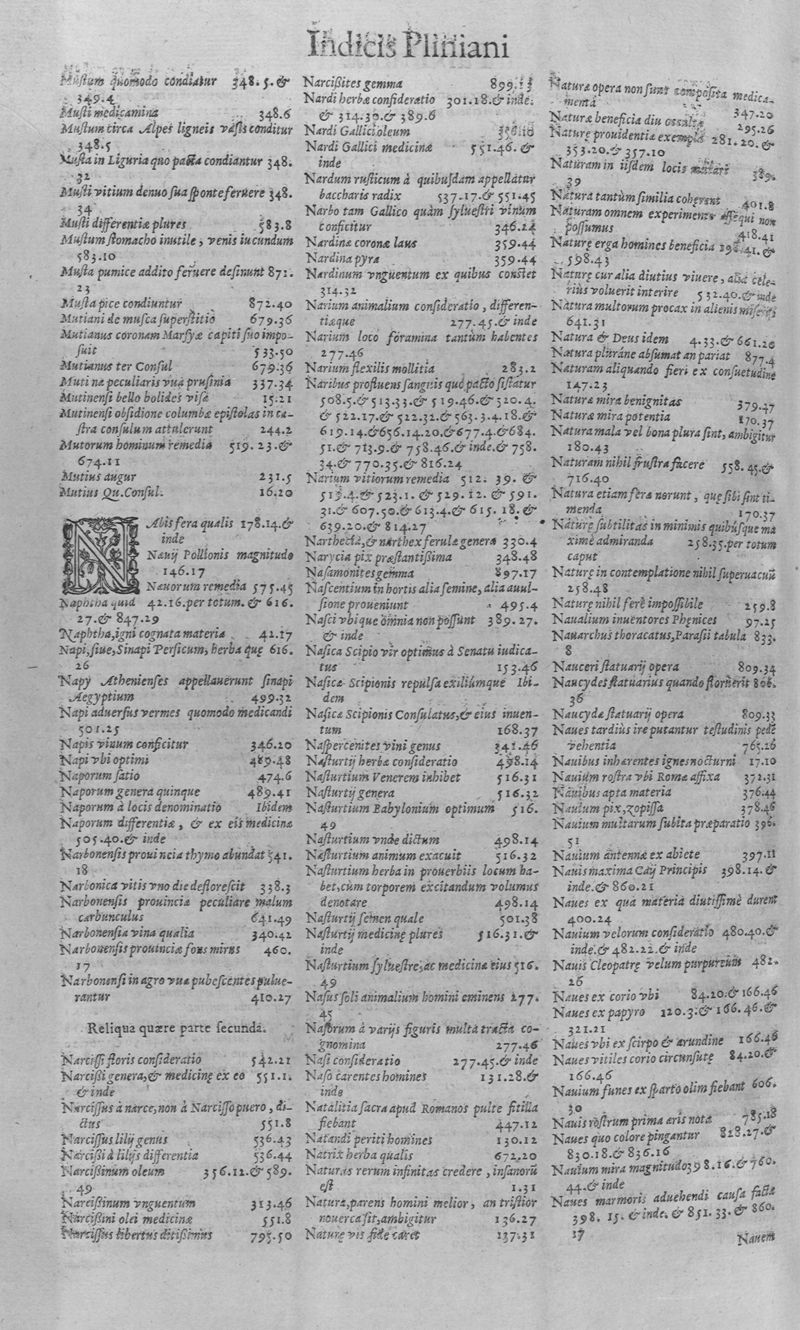 Indicis Pliniani
Mustum quomodo condiatur 348.5.&
349.4
Musti medicamina 348.6
Mustum circa Alpes ligneis vasis conditur
348.5
Musta in Liguria quo pacta condiantur 348.
32
Musti vitium denuo sua sponte feruere 348.
34
Musti differentiæ plures 583.8
Mustum stomacho inutile, venis iucundum
583.10
Musta pumice addito feruere desinunt 871.
23
Musta pice condiuntur 872.40
Mutiani de musca superstitio 679.36
Mutianus coronam Marsyæ capiti suo impo-
suit 533.50
Mutianus ter Consul 679.36
Mutina peculiaris vua prusinia 337.34
Mutinensi bello bolides visæ 15.21
Mutinensi obsidione columbæ epistolas in ca-
stra consulum attulerunt 244.2
Mutorum hominum remedia 519.23.&
674.11
Mutius augur 231.5
Mutius Qu. Consul. 16.20
NAbis fera qualis 178.14.&
inde
Nauij Pollionis magnitudo
146.17
Nauorum remedia 575.45
Naphtha quid 42.16. per totum. & 616.
27.& 847.29
Naphtha, igni cognata materia 42.17
Napi, siue, Sinapi Persicum, herba quę 616.
26
Napy Athenienses appellauerunt sinapi
Aegyptium 499.32
Napi aduersus vermes quomodo medicandi
501.25
Napis vinum conficitur 346.20
Napi vbi optimi 489.48
Naporum satio 474.6
Naporum genera quinque 489.41
Naporum à locis denominatio Ibidem
Naporum differentiæ, & ex eis medicina
505.40.& inde
Narbonensis prouincia thymo abundat 541.
18
Narbonica vitis vno die deflorescit 338.3
Narbonensis prouincia peculiare malum
carbunculus 641.49
Narbonensia vina qualia 340.42
Narbonensis prouincia fons mirus 460.
17
Narbonensi in agro vua pubescentes pulue-
rantur 410.27
Reliqua quære parte secunda.
Narcissi floris consideratio 542.21
Narcissi genera, & medicinę ex eo 551.1.
& inde
Narcissus à narce, non à Narcisso puero, di-
ctus 551.8
Narcissus lilij genus 536.43
Narcissi à lilijs differentia 536.44
Narcissinum oleum 356.12.& 589.
49
Narcissinum vnguentum 313.46
Narcissini olei medicinæ 551.8
Narcissus libertus ditissimus 795.50
Narcissites gemma 899.
Nardi herbæ consideratio 301.18.& inde.
& 314.30.& 389.6
Nardi Gallici oleum
Nardi Gallici medicinæ 551.46.&
inde
Nardum rusticum à quibusdam appellatur
baccharis radix 537.17.& 551.45
Narbo tam Gallico quàm syluestri vinum
conficitur 346.24
Nardinæ coronæ laus 359.44
Nardina pyra 359.44
Nardinum vnguentum ex quibus constet
314.32
Narium animalium consideratio, differen-
tiæque 277.45.& inde
Narium loco foramina tantùm habentes
277.46
Narium flexilis mollitia 283.2
Naribus profluens sanguis quo pacto sistatur
508.5.& 513.33.& 519.46.& 520.4.
& 522.17.& 522.32.& 563.3.4.18.&
619.14.& 656.14.20.& 677.4.& 684.
51.& 713.9.& 758.46.& inde.& 758.
34.& 770.35.& 816.24
Narium vitiorum remedia 512.39.&
513.4.& 523.1.& 529.12.& 591.
31.& 607.50.& 613.4.& 615.18.&
639.20.& 814.27
Narthecia, & narthex ferulæ genera 330.4
Narycia pix præstantissima 348.48
Nasamonites gemma 897.17
Nascentium in hortis alia semine, alia auul-
sione proueniunt 495.4
Nasci vbique omnia non possunt 389.27.
& inde
Nasica Scipio vir optimus à Senatu iudica-
tus 153.46
Nasicæ Scipionis repulsa exiliùmque Ibi-
dem
Nasicæ Scipionis Consulatus, & eius inuen-
tum 168.37
Naspercenites vini genus 341.46
Nasturtij herbæ consideratio 498.14
Nasturtium Venerem inhibet 516.31
Nasturtij genera 516.32
Nasturtium Babylonium optimum 516.
49
Nasturtium vnde dictum 498.14
Nasturtium animum exacuit 516.32
Nasturtium herba in prouerbiis locum ha-
bet, cùm torporem excitandum volumus
denotare 498.14
Nasturtij semen quale 501.38
Nasturtij medicinę plures 516.31.&
inde
Nasturtium syluestre, ac medicinæ eius 516.
49
Nasus soli animalium homini eminens 277.
45
Nasorum à varijs figuris multa tracta co-
gnomina 277.46
Nasi consideratio 277.45.& inde
Naso carentes homines 131.28.&
inde
Natalitia sacra apud Romanos pulte fitilla
fiebant 447.12
Natandi periti homines 130.12
Natrix herba qualis 672.20
Naturas rerum infinitas credere, insanorũ
est 1.31
Natura, parens homini melior, an tristior
nouerca sit, ambigitur 136.27
Naturę vis fide caret 137.31
Natura opera non sunt composita medica-
menta 347.20
Naturæ beneficia diu occulta 295.26
Naturę prouidentiæ exempla 281.20.&
353.20.& 357.10
Naturam in iisdem locis mutari 389.
39
Natura tantùm similia coherent 401.8
Naturam omnem experimento assequi non
possumus 418.41
Naturę erga homines beneficia 298.41.&
598.43
Naturę cur alia diutius viuere, alia cele-
rius voluerit interire 532.40.& inde
Natura multorum procax in alienis miseriis
641.31
Natura & Deus idem 4.33.& 661.20
Natura plurane absumat an pariat 877.4
Naturam aliquando fieri ex consuetudine
147.23
Naturæ mira benignitas 379.47
Naturæ mira potentia 170.37
Natura mala vel bona plura sint, ambigitur
180.43
Naturam nihil frustra facere 558.45.&
716.40
Natura etiam fera norunt, quę sibi sint ti-
menda 170.37
Naturę subtilitas in minimis quibusque ma
ximè admiranda 258.35. per totum
caput
Naturę in contemplatione nihil superuacuũ
258.48
Naturę nihil ferè impossibile 259.8
Naualium inuentores Phęnices 97.25
Nauarchus thoracatus, Parasii tabula 833.
8
Nauceri statuarij opera 809.34
Naucydes statuarius quando floruerit 806.
36
Naucydæ statuarij opera 809.33
Naues tardiùs ire putantur testudinis pede
vehentia 765.26
Nauibus inhærentes ignes nocturni 17.10
Nauium rostra vbi Romæ affixa 371.31
Nauibus apta materia 376.44
Nauium pix, zopissa 378.46
Nauium multarum subita præparatio 396.
51
Nauium antennæ ex abiete 397.11
Nauis maxima Caij Principis 398.14.&
inde.& 860.21
Naues ex qua materia diutissimè durent
400.24
Nauium velorum consideratio 480.40.&
inde.& 482.22.& inde
Nauis Cleopatrę velum purpureum 482.
26
Naues ex corio vbi 84.20.& 166.46
Naues ex papyro 120.3.& 166.46.&
321.21
Naues vbi ex scirpo & arundine 166.46
Naues vitiles corio circunsutę 84.20.&
166.46
Nauium funes ex sparto olim fiebant 606.
30
Nauis rostrum prima æris nota 785.18
Naues quo colore pingantur 828.27.&
830.18.& 836.16
Nauium mira magnitudo 398.16.& 760.
44.& inde
Naues marmoris aduehendi causa factæ
398.15.& inde.& 851.33.& 860.
17
Nauem